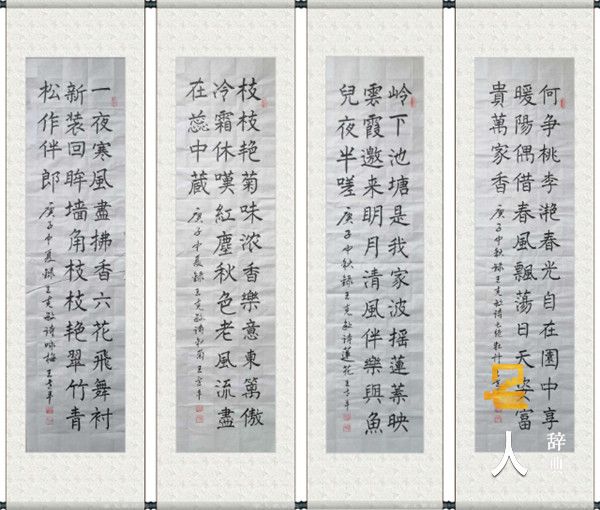 何争桃李滟春光自在園中享
暖陽偶借春風飄蕩日天姿富
貴萬家香 庚子中秋録王克敏詩七绝牡丹
岭下池塘是我家波摇蓮葉映
雲霞邀来明月清風伴樂與魚
兒夜半嗟 庚子中秋録王克敏詩蓮花
枝枝艳菊味浓香樂意東篱傲
冷霜休嘆紅塵秋色老風流盡
在蕊中藏 庚子中夏録王克敏詩秋菊
一夜寒風盡拂香六花飛舞衬
新装回眸墙角枝枝艳翠竹青
松作伴郎 庚子中夏録王克敏詩咏梅
名人辞典